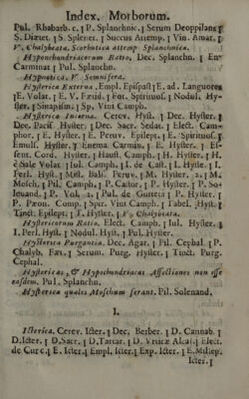 Index. Morborum.
Pul. Rhabarb. c. ¶ P. Splanchnic. ¶ Serum Deoppilans ¶
S. Diuret. ¶ S. Splenet. ¶ Succus Attemp. ¶ Vin. Amar. ¶
V. Chalybeata, Scorbutica attemp Splanchnica.
Hypochondriacorum Ratio, Dec. Splanchn. ¶ En
Carminat ¶ Pul. Splanchn.
Hypnotica. V. Somnifera.
Hysterica Externa, Empl. Epispast ¶ E. ad. Languores
¶ E. Volat. ¶ E. V. Fœtid. ¶ Fot. Spirituos. ¶ Nodul. Hy-
ster. ¶ Sinapism. ¶ Sp. Vini Camph.
Hysterica Interna. Cerev. Hyst. ¶ Dec. Hyster. ¶
Dec. Pacif Hyster ¶ Dec Sacr. Sedat. ¶ Elect. Cam-
phor. ¶ E. Hyster. ¶ E. Peruv. Epilept. ¶ E. Spirituos.
Emuls. Hyster. ¶ Enema. Carmin. ¶ E. Hyster. ¶ Es-
sent. Cord. Hyster. ¶ Haust. Camph. ¶ H. Hyster. ¶ H.
è Sale Volat. ¶ Jul. Camph. ¶ J. de Cast. ¶ J. Hyste. ¶ J.
Perl. Hyst. ¶ Mist. Bals. Peruv. ¶ M. Hyster. ¶ M.
Mosch. ¶ Pil. Camph. ¶ P. Castor. ¶ P. Hyster. ¶ P. So-
lenand. ¶ P. Vol. ¶ Pul. de Guttet. ¶ P. Hyster. ¶
P. Pæon. Comp. ¶ Spir. Vini Camph. ¶ Tabel. Hyst. ¶
Tinct. Epilept. ¶ T. Hyster. ¶ V. Chalybeata.
Hystericorum Ratio. Elect. Camph. ¶ Jul. Hyster. ¶
J. Perl. Hyst. ¶ Nodul. Hyst. ¶ Pul. Hyster.
Hysterica Purgantia. Dec. Agar. ¶ Pil. Cephal. ¶ P.
Chalyb. Fæt. ¶ Serum. Purg. Hyster. ¶ Tinct. Purg.
Cephal.
Hystericas, & Hypochondriacas Affectiones non esse
easdem. Pul. Splanchn.
Hysterica quales Moschum ferant. Pil. Solenand.
I.
Icterica. Cerev. Icter. ¶ Dec. Berber. ¶ D. Cannab. ¶
D. Icter. ¶ D. Sacr. ¶ D. Tartar. ¶ D. Urticæ Alcal. ¶ Elect.
de Curc. ¶ E. Icter. ¶ Empl. Ickt. ¶ Exp. Icter. ¶ E. Millep.
Icter. ¶